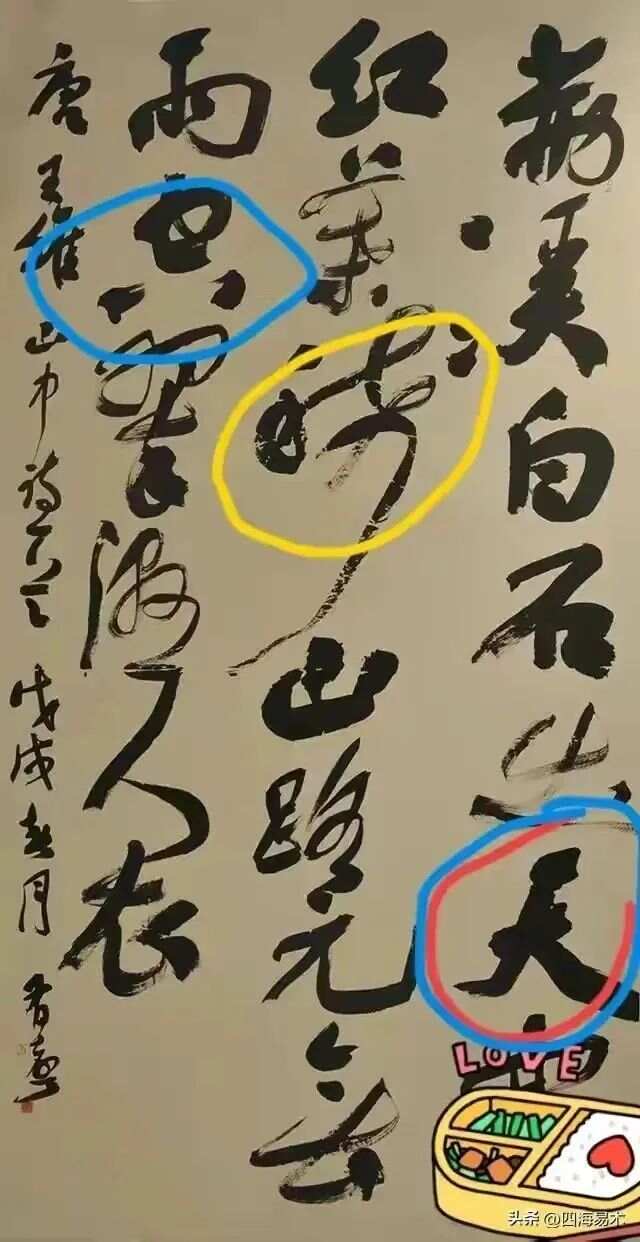 荆溪白石出天
红葉稀山路元無
雨空翠湿人衣
唐王维山中诗 戊戌 月
LOVE
头条 @四海易木